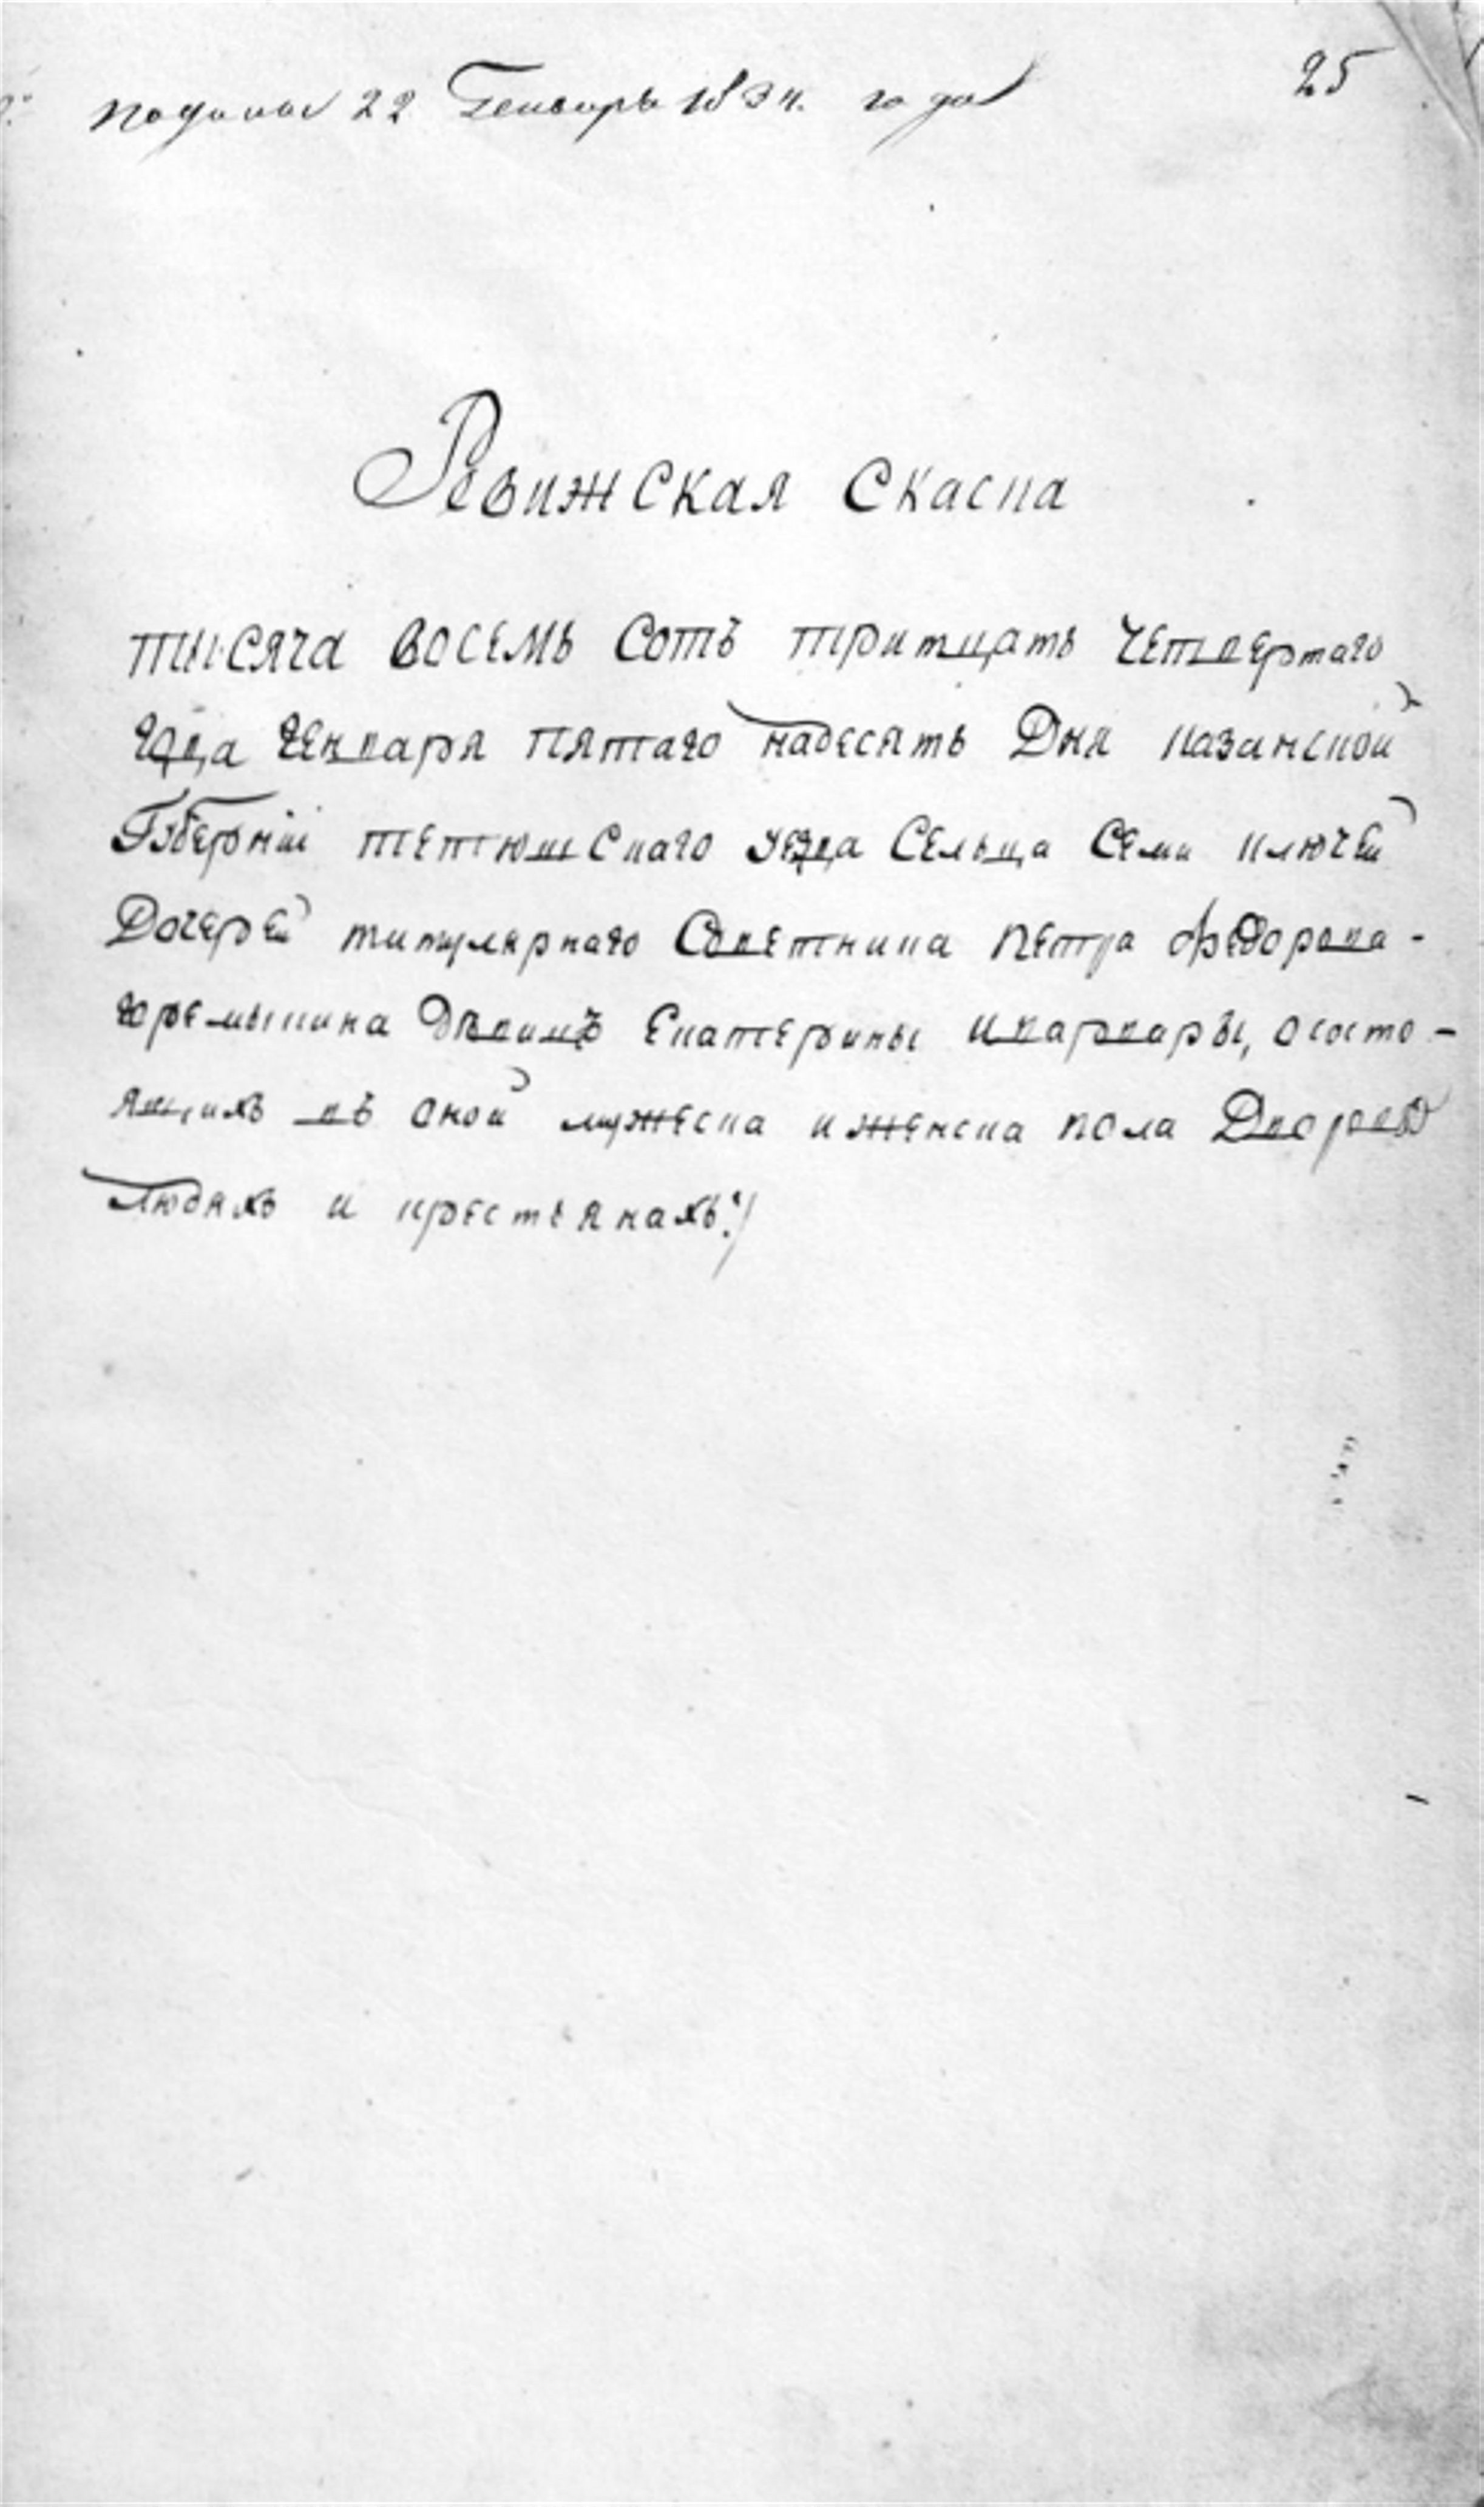 подана 22 Генваря 1834. года
25
Ревижская скаска
тысяча восемь сотъ тритцать четвертаго
года генваря пятаго надесять дня казанской
Губерніи тетюшскаго уезда сельца семи ключей
Дочерей титулярнаго Советника петра федорова -
горемыкина девицъ Екатерины иварвары, ососто -
ящихъ въ оной мужеска иженска пола Дворов
людяхъ и крестьянахъ:/